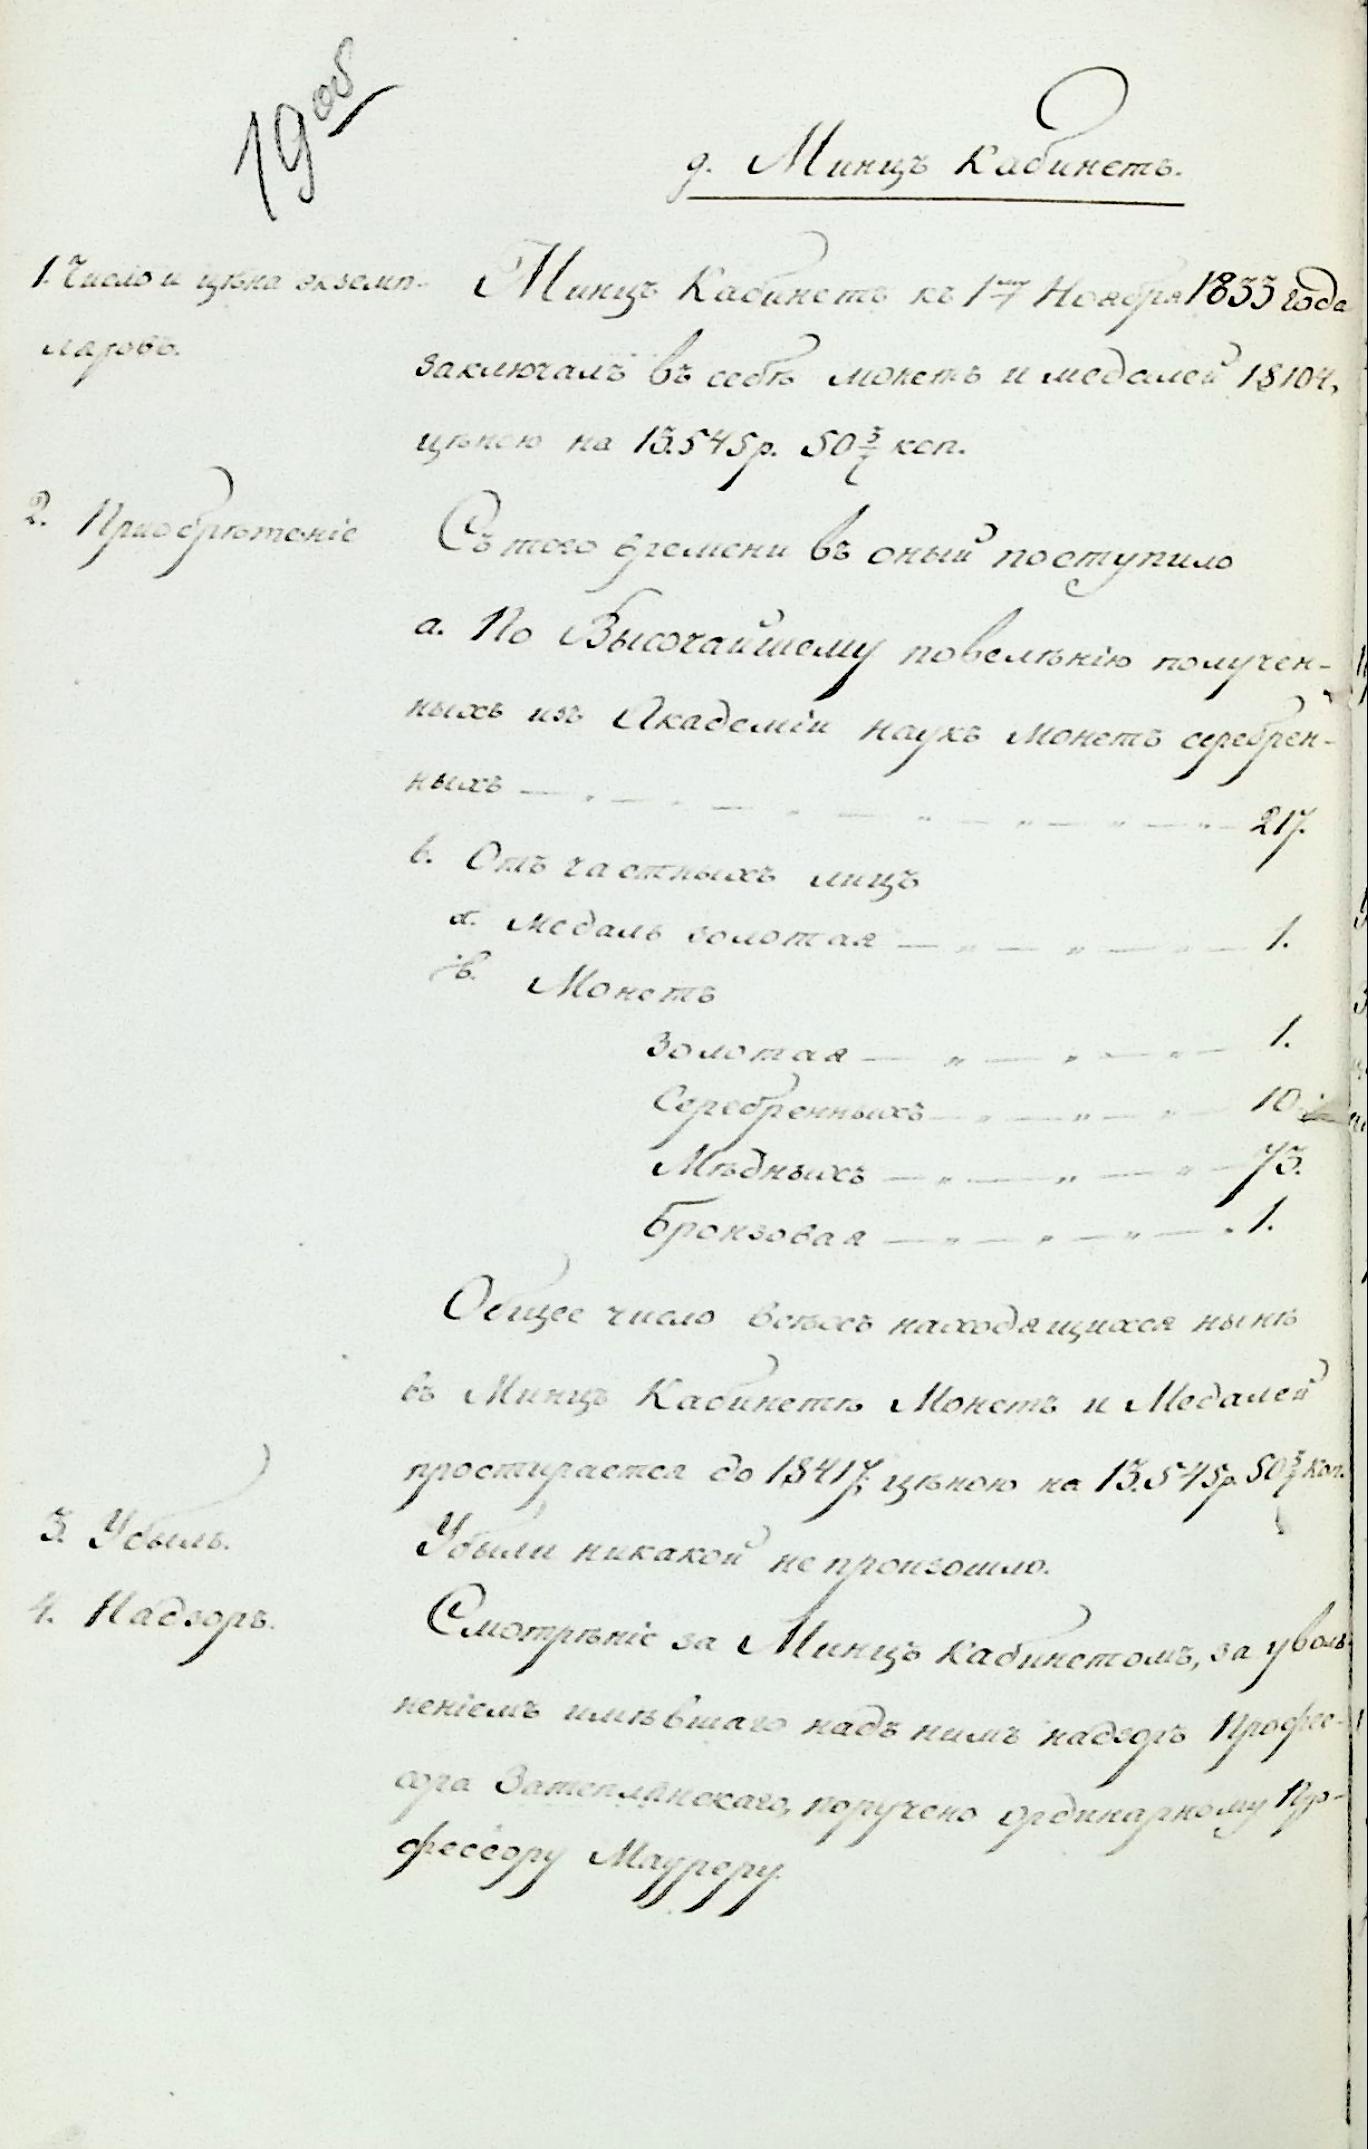 19 об
g. Минцъ Кабинетъ.
1. Число и цѣна экземп-
ляровъ.
Минцъ Кабинетъ къ 1му Ноября 1833 года
заключалъ въ себѣ монетъ и медалей 18104,
цѣною на 13.545 р. 50 3/7 коп.
2. Приобрѣтеніе
Съ того времени въ оный поступило
а. По Высочайшему повелѣнію получен-
ныхъ изъ Академіи наукъ монетъ серебрен-
ныхъ — „ — „ — „ — „ — „ — „ — „ — 217.
b. Отъ частныхъ лицъ
α. Медаль золотая — „ — „ — „ — 1.
Монетъ
Золотая — „ — „ — „ — 1.
Серебренныхъ — „ — „ — „ — 10.
Мѣдныхъ — „ — „ — „ — 73.
Бронзовая — „ — „ — „ — „ 1.
Общее число всѣхъ находящихся нынѣ
въ Минцъ Кабинетѣ Монетъ и Медалей
простирается до 18417, цѣною на 13.545 р. 50 3/7 коп.
3. Убыль.
Убыли никакой не произошло.
4. Надзоръ.
Смотрѣніе за Минцъ Кабинетомъ, за уволь-
неніемъ имѣвшаго надъ нимъ надзоръ Профес-
сора Затеплинскаго, поручено Ординарному Про-
фессору Мауреру.